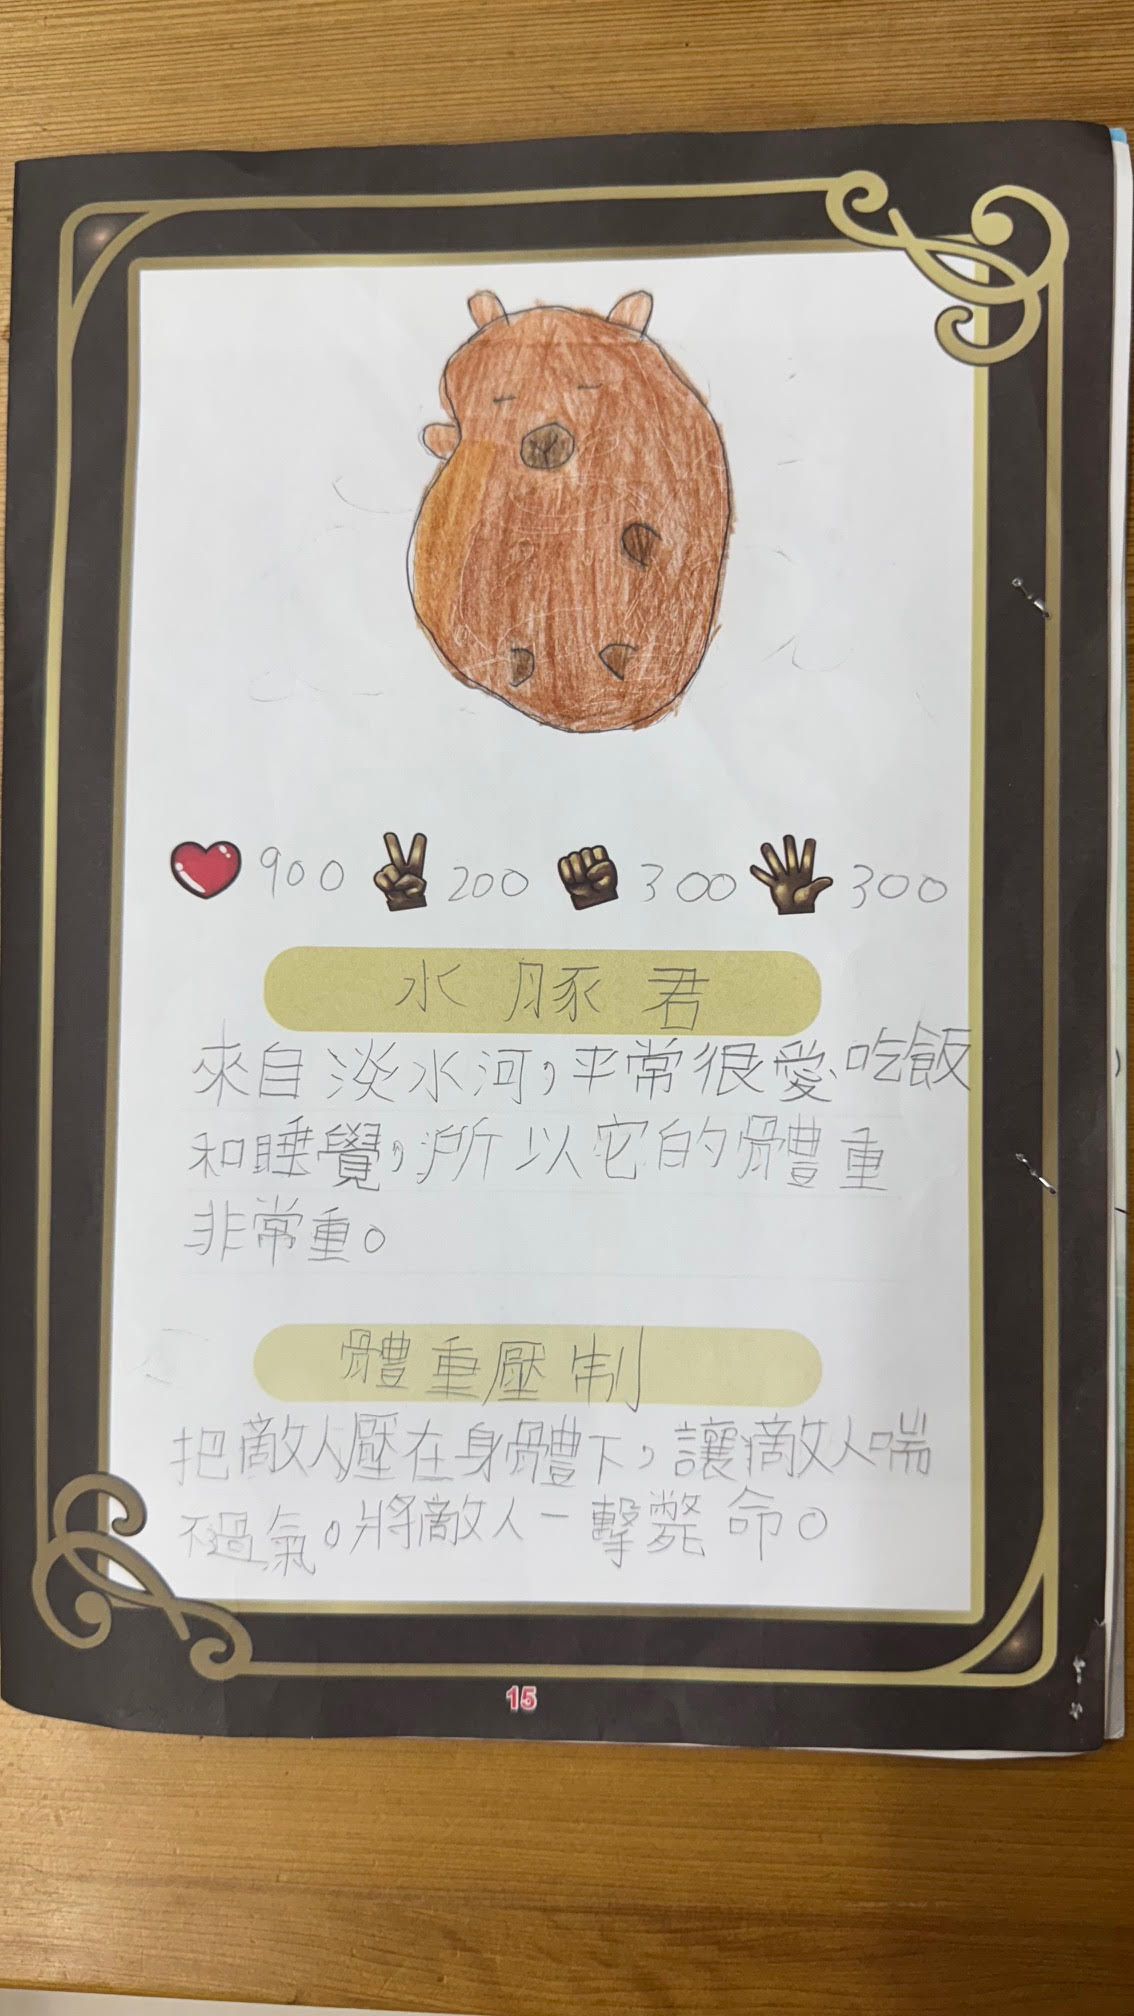 900 200 300 300
水豚君
來自淡水河,平常很愛吃飯
和睡覺,所以它的體重
非常重。
體重壓制
把敵人壓在身體下,讓敵人喘
不過氣。將敵人一擊斃命。
15